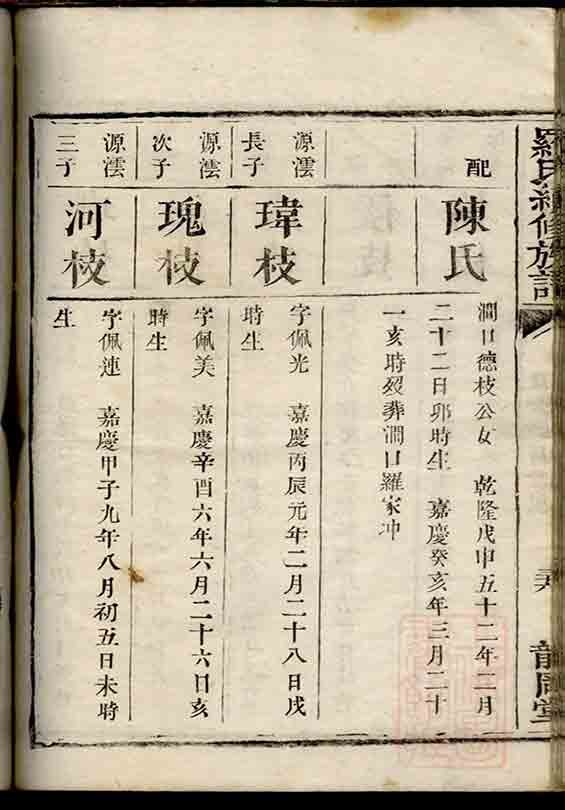 羅氏續修族譜
龍門堂
配
陳氏
澗口德枝公女 乾隆戊申五十二年二月
二十二日卯時生 嘉慶癸亥年三月二十
一亥時歿葬澗口羅家冲
源澐
長子
瑋枝
字佩光 嘉慶丙辰元年二月二十八日戌
時生
源澐
次子
瑰枝
字佩美 嘉慶辛酉六年六月二十六日亥
時生
源澐
三子
河枝
字佩連 嘉慶甲子九年八月初五日未時
生